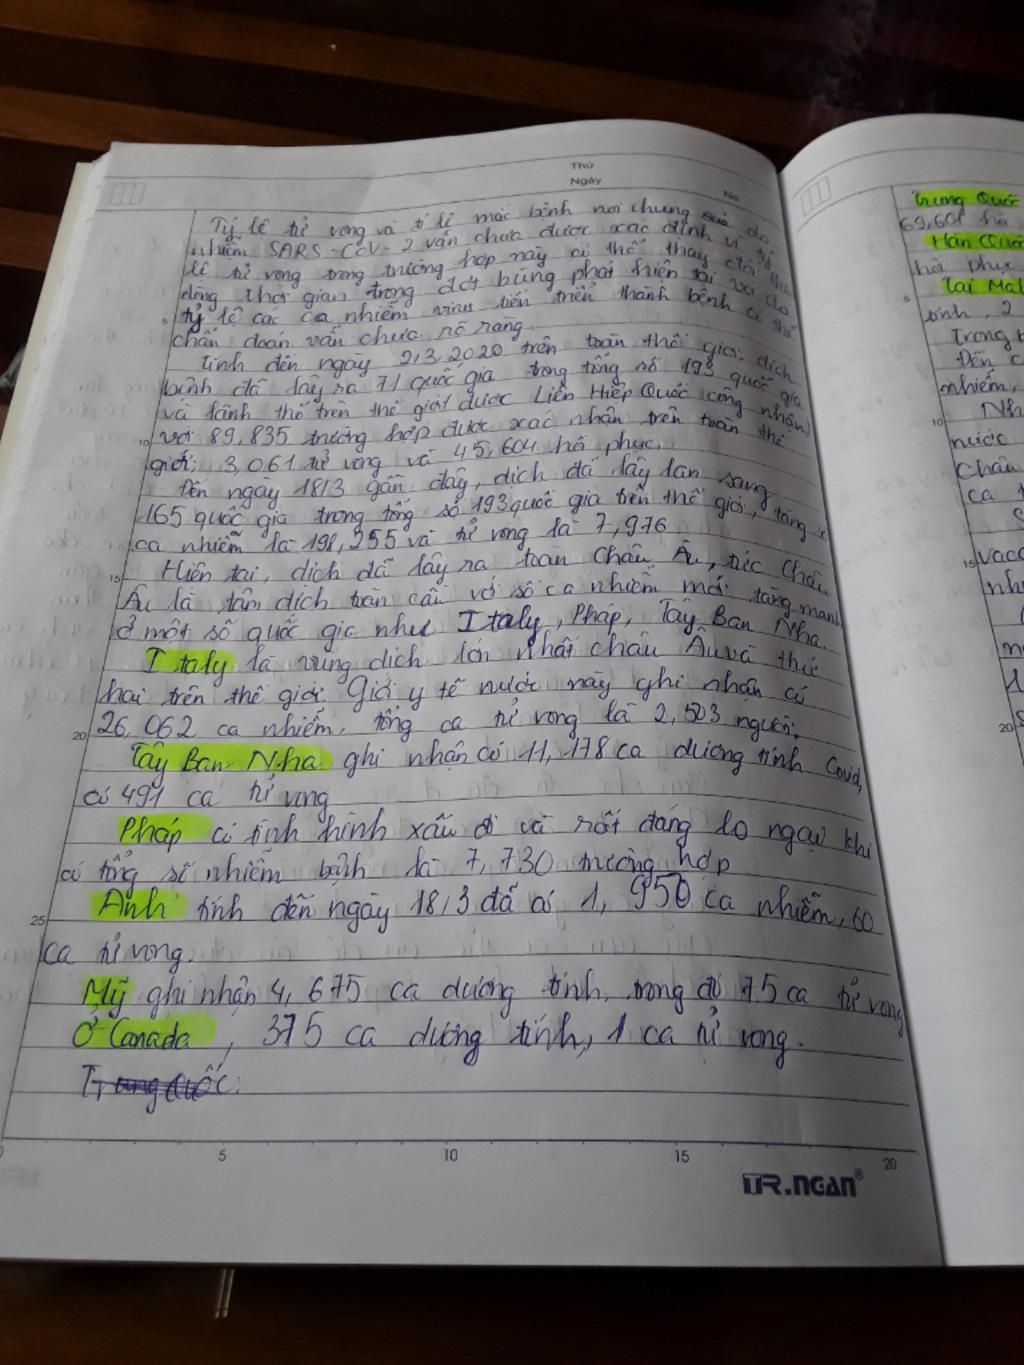 Thứ
Ngày
No
Tỷ lệ tử vong và tỉ lệ mắc bệnh nói chung do
nhiễm SARS-CoV-2 vẫn chưa được xác định vì tỷ
lệ tử vong trong trường hợp này có thể thay đổi
động thời gian trong đợt bùng phát hiện tại và do
tỷ lệ các ca nhiễm virus tiến triển thành bệnh có thể
chẩn đoán vẫn chưa rõ ràng.
Tính đến ngày 2/3/2020 trên toàn thế giới, dịch
bệnh đã lây ra 71 quốc gia trong tổng số 193 quốc gia
và lãnh thổ trên thế giới được Liên Hiệp Quốc công nhận
với 89,835 trường hợp được xác nhận trên toàn thế
10
giới; 3,061 tử vong và 45,604 hồi phục.
Đến ngày 18/3 gần đây, dịch đã lây lan sang
165 quốc gia trong tổng số 193 quốc gia trên thế giới, tăng
ca nhiễm là 198,255 và tử vong là 7,976
Hiện tại, dịch đã lây ra toàn Châu Âu, tức Châu
15
Âu là tâm dịch toàn cầu với số ca nhiễm mới tăng mạnh
ở một số quốc gia như Italy, Pháp, Tây Ban Nha.
Italy là vùng dịch lớn nhất châu Âu và thứ
hai trên thế giới. Giới y tế nước này ghi nhận có
20
26,062 ca nhiễm, tổng ca tử vong là 2,503 người.
Tây Ban Nha ghi nhận có 11,178 ca dương tính Covid,
có 491 ca tử vong
Pháp có tình hình xấu đi và rất đáng lo ngại khi
có tổng số nhiễm bệnh là 7,730 trường hợp
25
Anh tính đến ngày 18/3 đã có 1,950 ca nhiễm, 60
ca tử vong.
Mỹ ghi nhận 4,675 ca dương tính, trong đó 75 ca tử vong
Ở Canada, 375 ca dương tính, 1 ca tử vong.
Trung Quốc:
5 10 15 20
TR.NGAN®
Trung Quốc
69,601 hồi
Hàn Quốc
hồi phục
Tại Mal
tính, 2
Trong
Đến
nhiễm,
10
Nh
nước
Châu
ca
15
vacc
nh
20